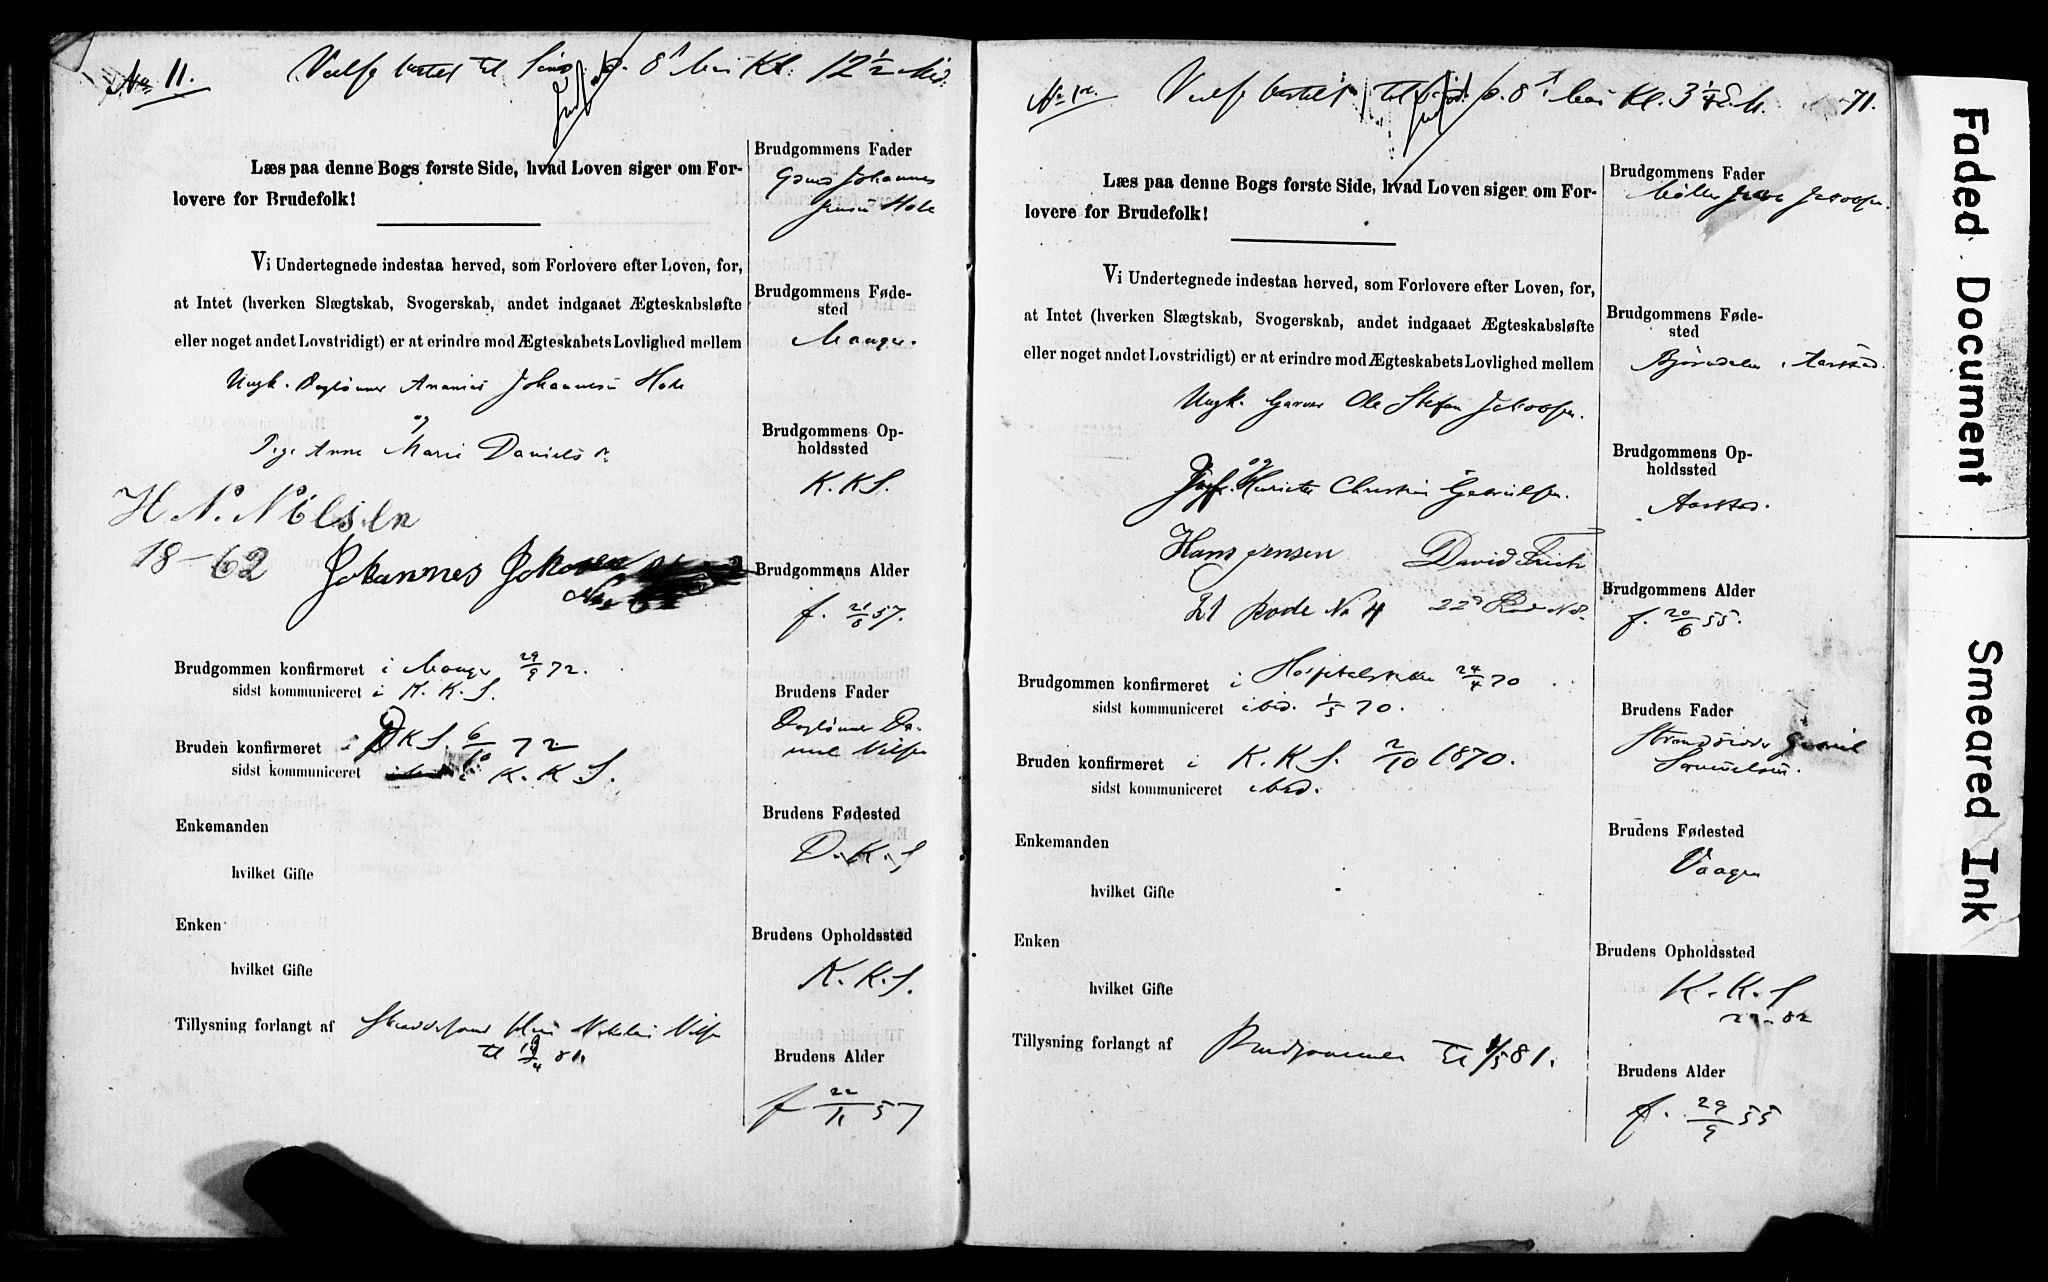 No 11.
Vielse bestilt til d. 8 Mai Kl. 12 1/2 Mid.
Læs paa denne Bogs første Side, hvad Loven siger om For-
lovere for Brudefolk!
Vi Undertegnede indestaa herved, som Forlovere efter Loven, for,
at Intet (hverken Slægtskab, Svogerskab, andet indgaaet Ægteskabsløfte
eller noget andet Lovstridigt) er at erindre mod Ægteskabets Lovlighed mellem
Ungk. Daglønner Ananias Johannesen
og
Pige Anne Marie Daniels
H. N. Nilsen
18-62 Johannes
Brudgommen konfirmeret i Manger 29/9 72.
sidst kommuniceret i K. K. S.
Bruden konfirmeret i D K S. 6/10 72
sidst kommuniceret i K. K. S.
Enkemanden
hvilket Gifte
Enken
hvilket Gifte
Tillysning forlangt af
til 81.
Brudgommens Fader
Johannes
Brudgommens Føde-
sted
Manger.
Brudgommens Op-
holdssted
K. K S.
Brudgommens Alder
f. 57.
Brudens Fader
Daglønner Da-
niel Nilsen
Brudens Fødested
D. K. S
Brudens Opholdssted
K. K. S.
Brudens Alder
f 22/11 57
71.
Vielse bestilt til d. 8 Mai Kl. 3 1/4 E. M.
Læs paa denne Bogs første Side, hvad Loven siger om For-
lovere for Brudefolk!
Vi Undertegnede indestaa herved, som Forlovere efter Loven, for,
at Intet (hverken Slægtskab, Svogerskab, andet indgaaet Ægteskabsløfte
eller noget andet Lovstridigt) er at erindre mod Ægteskabets Lovlighed mellem
Ungk. Garver Ole Stefan Jakobsen.
og
Christine Gabrielsen.
Hans Jensen David
21 Rode No 4 22d
Brudgommen konfirmeret i Hospitalskirken 24/4 70
sidst kommuniceret ibid. 1/5 70.
Bruden konfirmeret i K. K. S. 2/10 1870.
sidst kommuniceret ibid.
Enkemanden
hvilket Gifte
Enken
hvilket Gifte
Tillysning forlangt af Brudgommen til 1/5 81.
Brudgommens Fader
Møller Jakobsen.
Brudgommens Føde-
sted
Bjørndalen i Aarstad.
Brudgommens Op-
holdssted
Aarstad.
Brudgommens Alder
f. 20/6 55.
Brudens Fader
Strandsidder Gabriel
Samuelsen.
Brudens Fødested
Vaagen
Brudens Opholdssted
K. K. S
22-82
Brudens Alder
f. 29/9 55
Faded Document
Smeared Ink